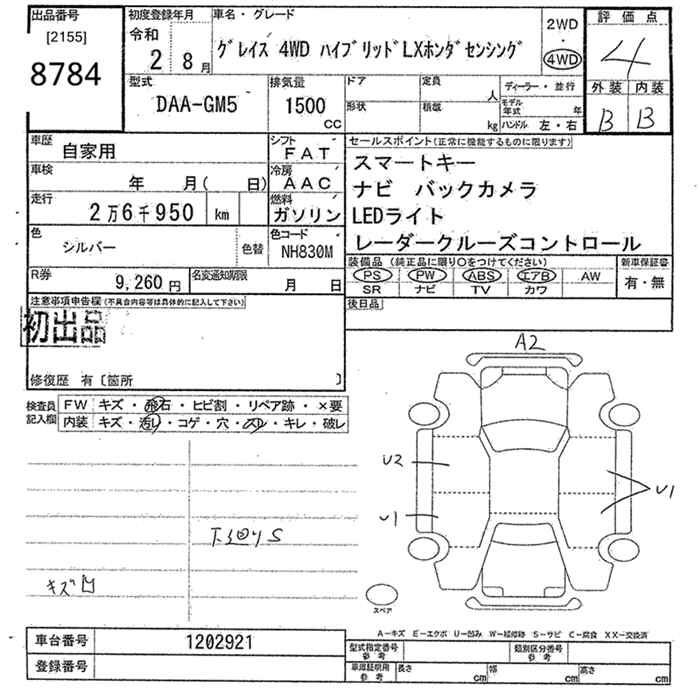 出品番号
[2155]
8784
初度登録年月
令和
2 8月
車名・グレード
グレイス 4WD ハイブリッドLXホンダセンシング
2WD
・
4WD
評価点
4
外装 内装
B B
型式
DAA-GM5
排気量
1500
CC
ドア
定員
人
形状
積載
kg
ディーラー・並行
モデル年式 年
ハンドル 左・右
車歴
自家用
シフト
FAT
車検
年 月( 日)
冷房
AAC
走行
2万6千950 km
燃料
ガソリン
色
シルバー
色替
色コード
NH830M
R券
9,260円
名変通知期限
月 日
セールスポイント(正常に機能するものに限ります)
スマートキー
ナビ バックカメラ
LEDライト
レーダークルーズコントロール
装備品 (純正品に限り○をつけてください)
新車保証書
PS PW ABS エアB AW
有・無
SR ナビ TV カワ
後日品
注意事項申告欄(不具合内容等は具体的に記入して下さい)
初出品
修復歴 有〔箇所 〕
検査員記入欄
FW キズ・飛石・ヒビ割・リペア跡・×要
内装 キズ・汚レ・コゲ・穴・スレ・キレ・破レ
キズ凹
A2
U2
U1
U1
スペア
A-キズ E-エクボ U-凹み W-補修跡 S-サビ C-腐食 XX-交換済
車台番号
1202921
登録番号
型式指定番号
参考
類別区分番号
参考
車庫証明用
参考
長さ cm
幅 cm
高さ cm